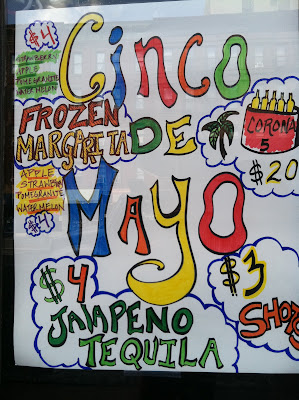 $4
STRAWBERRY
APPLE
POMEGRANITE
WATERMELON
Cinco
FROZEN
MARGARITA
DE
CORONA
5
$20
APPLE
STRAWBERRY
POMEGRANITE
WATERMELON
$4
MAYO
$4
JALAPENO
TEQUILA
$3
SHOTS